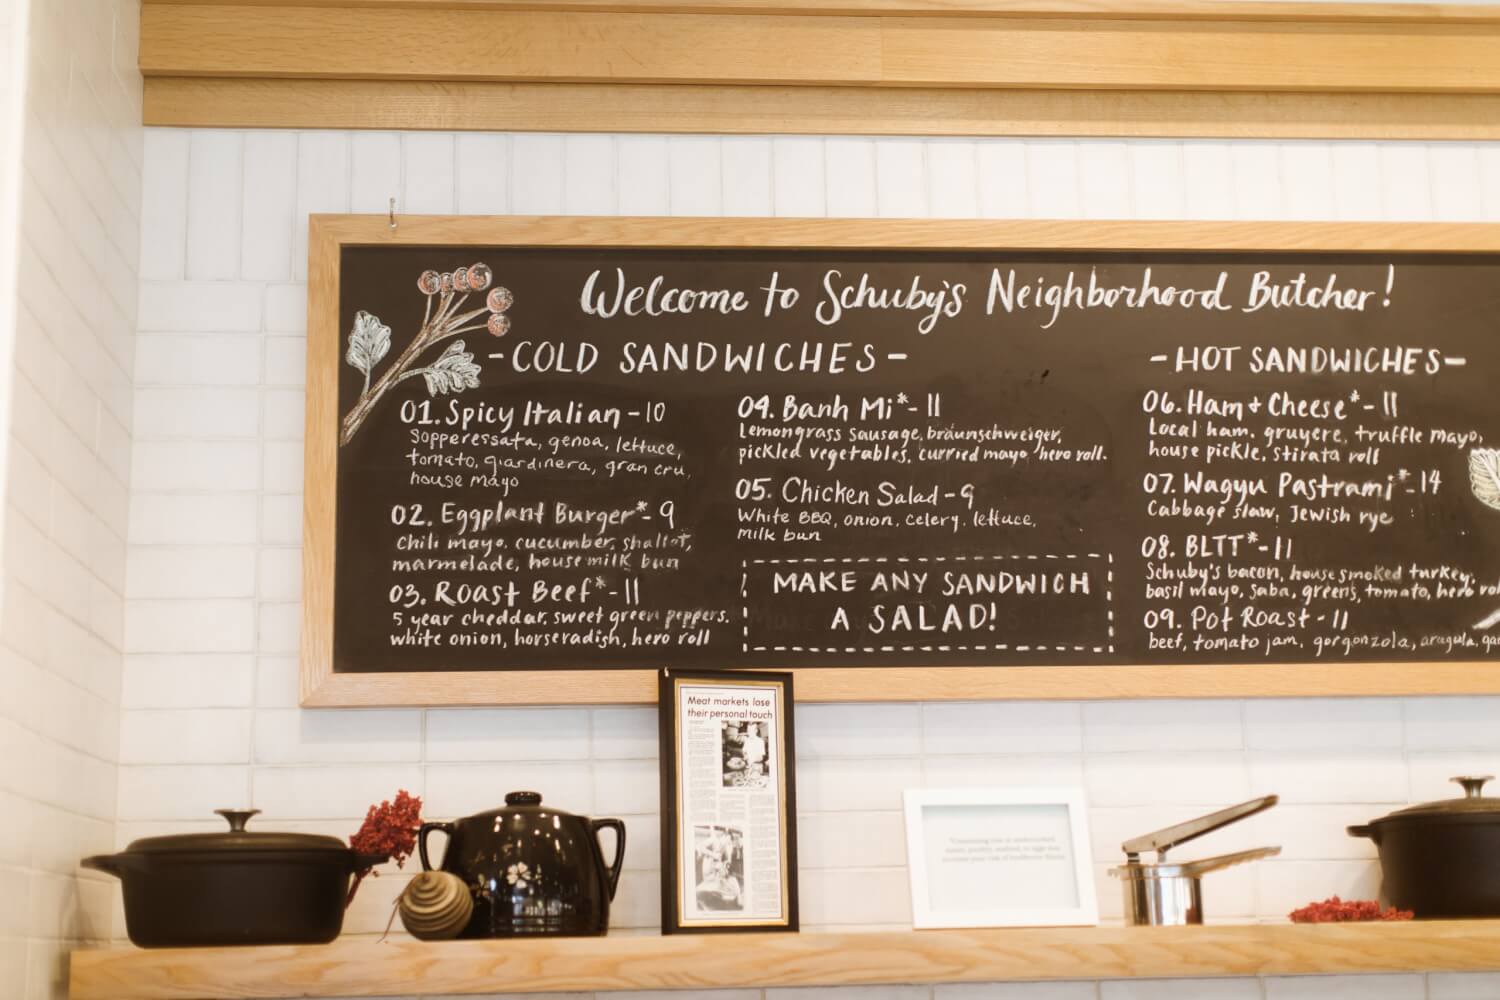 Welcome to Schuby's Neighborhood Butcher!
- COLD SANDWICHES -
01. Spicy Italian - 10
Sopperessata, genoa, lettuce,
tomato, giardinera, gran cru,
house mayo
02. Eggplant Burger* - 9
Chili mayo, cucumber, shallot,
marmelade, house milk bun
03. Roast Beef* - 11
5 year cheddar, sweet green peppers.
white onion, horseradish, hero roll
04. Banh Mi* - 11
Lemongrass sausage, braunschweiger,
pickled vegetables, curried mayo, hero roll.
05. Chicken Salad - 9
White BBQ, onion, celery, lettuce,
milk bun
MAKE ANY SANDWICH
A SALAD!
- HOT SANDWICHES -
06. Ham + Cheese* - 11
Local ham, gruyere, truffle mayo,
house pickle, stirata roll
07. Wagyu Pastrami* - 14
Cabbage slaw, Jewish rye
08. BLTT* - 11
Schuby's bacon, house smoked turkey,
basil mayo, saba, greens, tomato, hero
09. Pot Roast - 11
beef, tomato jam, gorgonzola, arugula,
Meat markets lose
their personal touch